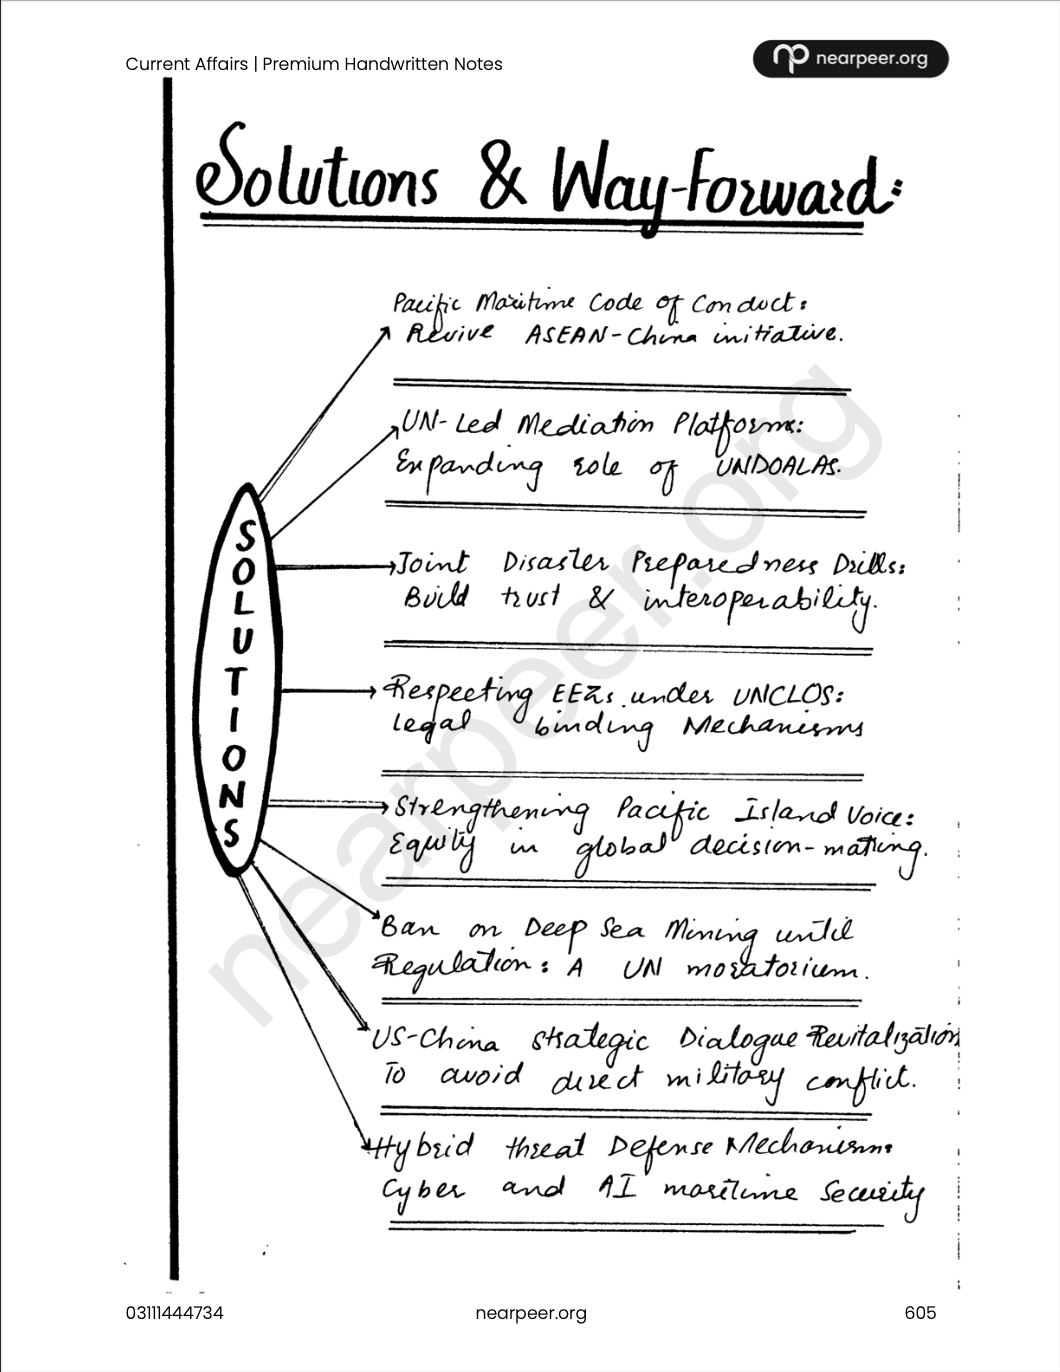 Current Affairs | Premium Handwritten Notes
nearpeer.org
Solutions & Way-Forward:
Pacific Maritime Code of Conduct:
Revive ASEAN-China initiative.
UN-Led Mediation Platforms:
Expanding role of UNDOALAS.
Joint Disaster Preparedness Drills:
Build trust & interoperability.
Respecting EEZs under UNCLOS:
legal binding Mechanisms
Strengthening Pacific Island Voice:
Equity in global decision-making.
Ban on Deep Sea Mining until
Regulation: A UN moratorium.
US-China strategic Dialogue Revitalization
To avoid direct military conflict.
Hybrid threat Defense Mechanisms
Cyber and AI maritime Security
SOLUTIONS
nearpeer.org
03111444734
nearpeer.org
605